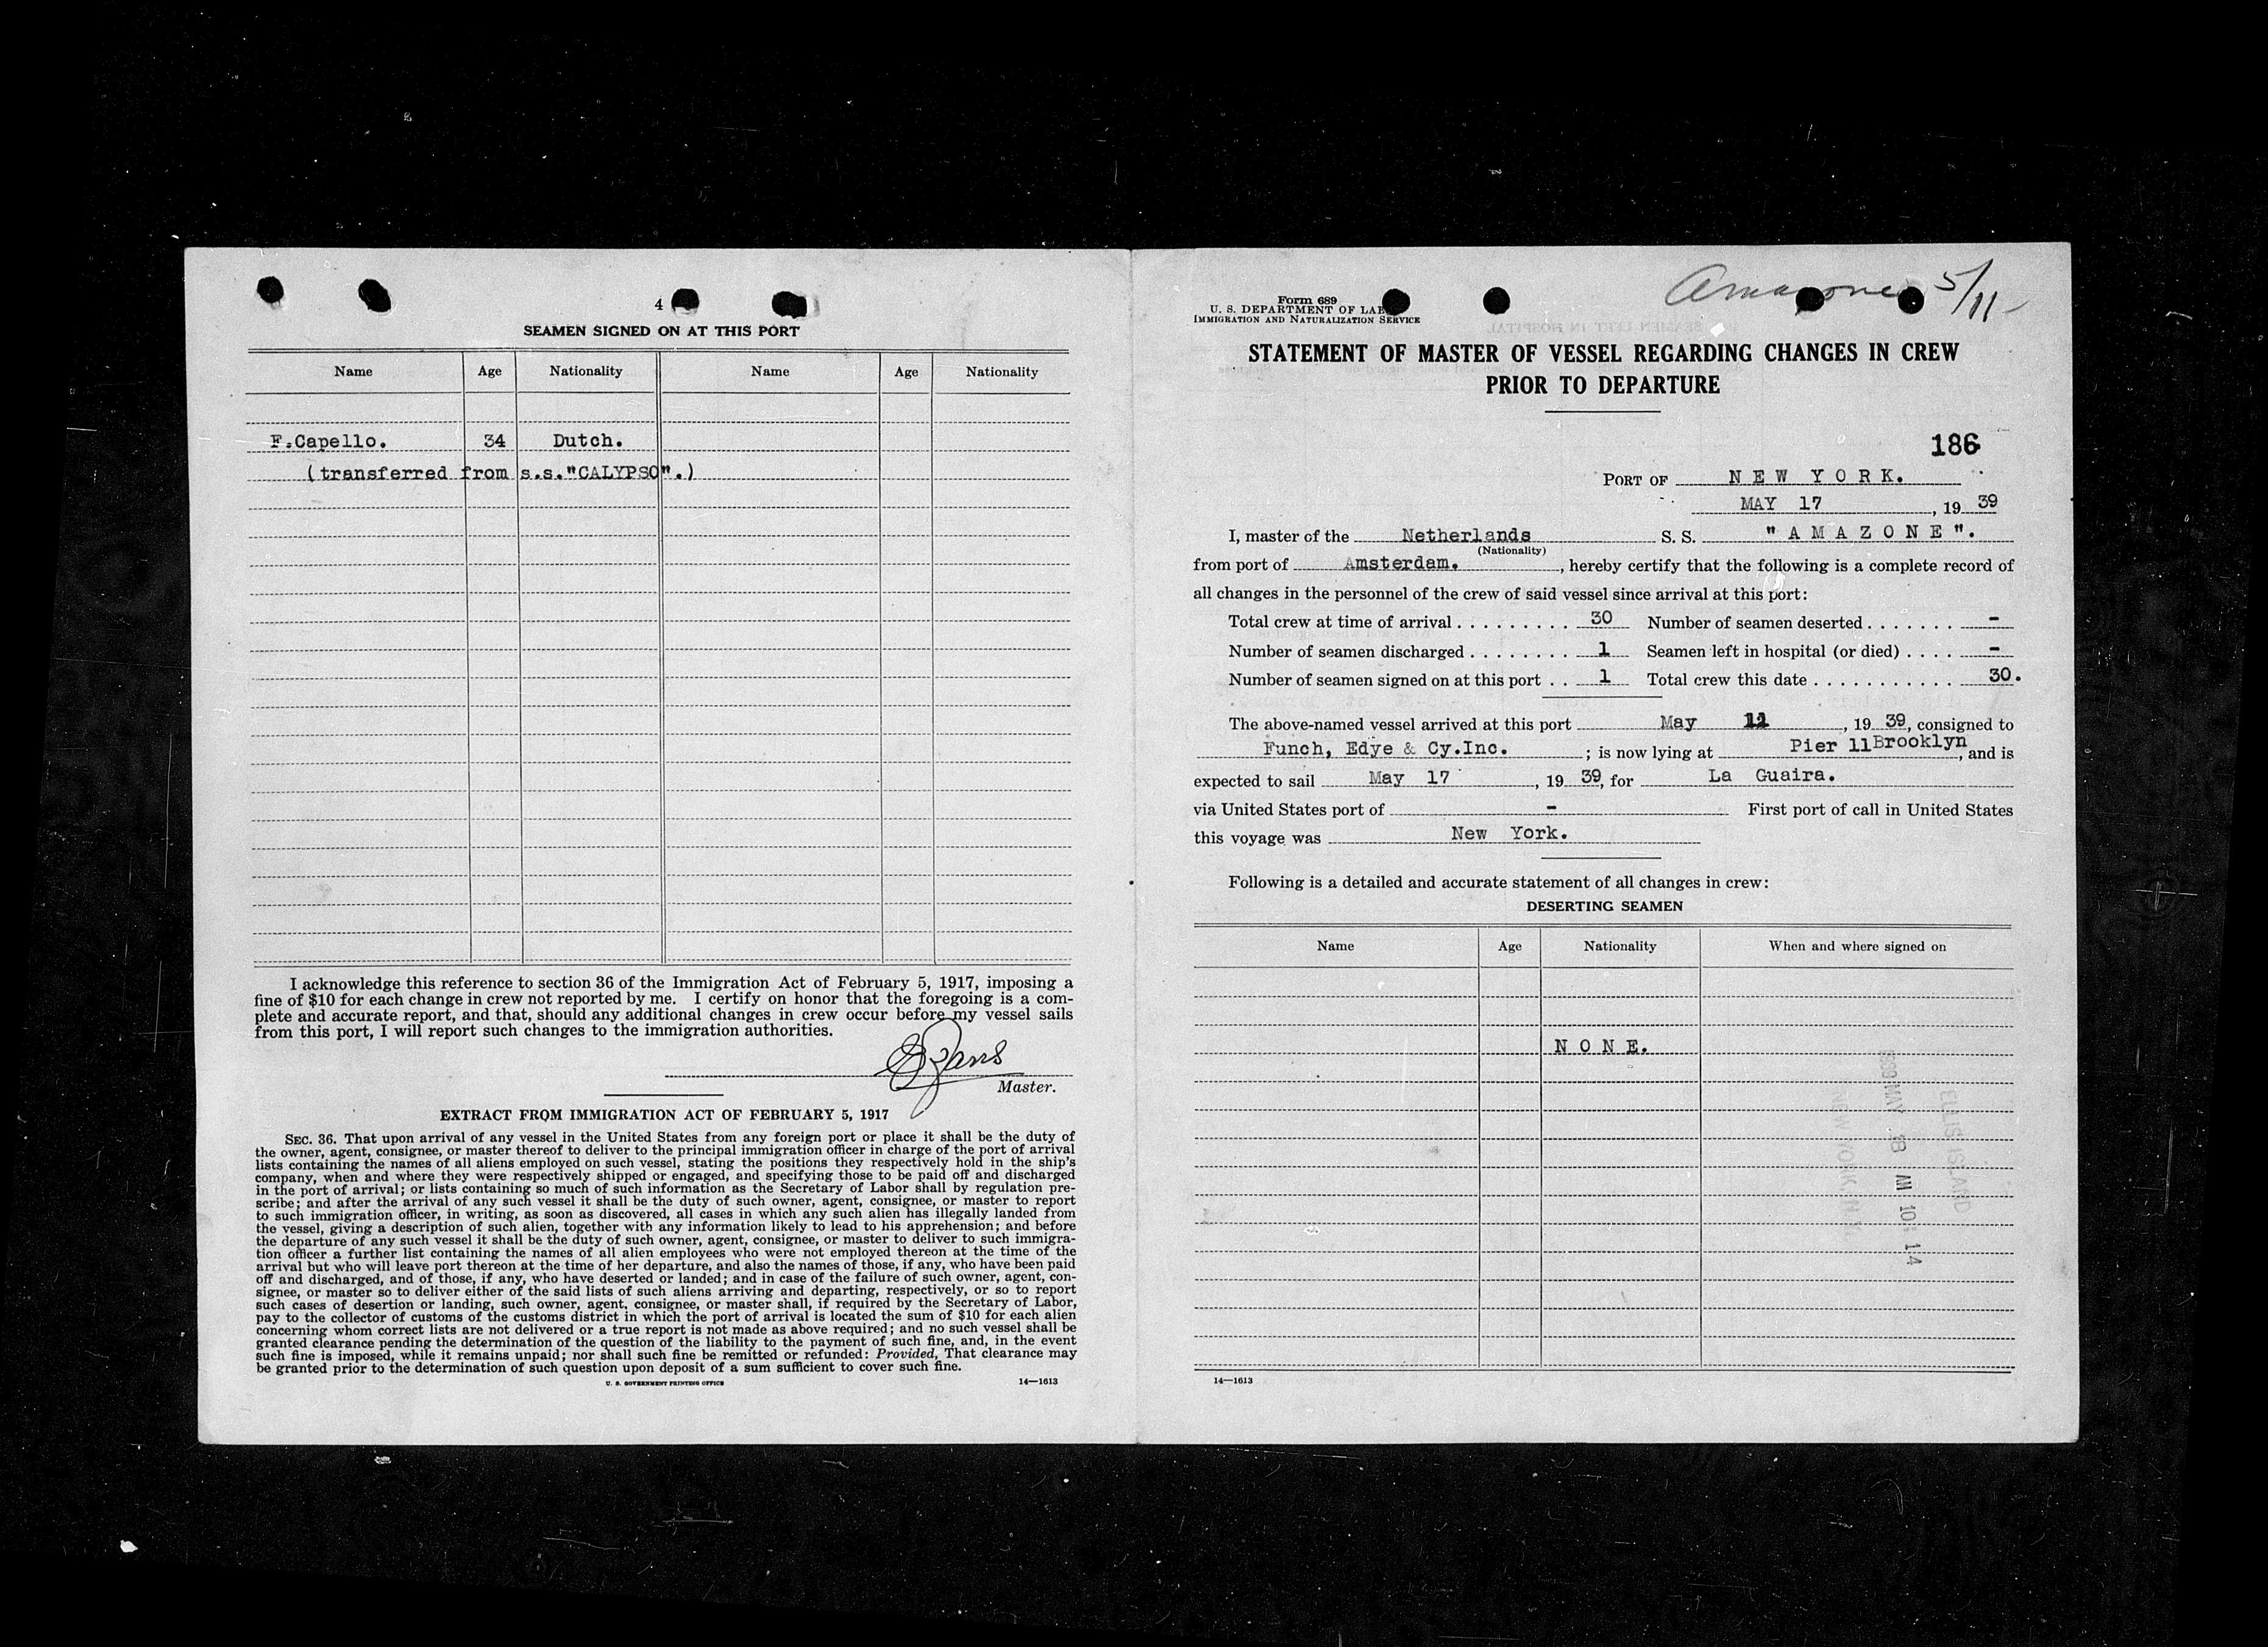 4
SEAMEN SIGNED ON AT THIS PORT
Name Age Nationality Name Age Nationality
F.Capello. 34 Dutch.
(transferred from s.s."CALYPSO".)
I acknowledge this reference to section 36 of the Immigration Act of February 5, 1917, imposing a
fine of $10 for each change in crew not reported by me. I certify on honor that the foregoing is a com-
plete and accurate report, and that, should any additional changes in crew occur before my vessel sails
from this port, I will report such changes to the immigration authorities.
Master.
EXTRACT FROM IMMIGRATION ACT OF FEBRUARY 5, 1917
SEC. 36. That upon arrival of any vessel in the United States from any foreign port or place it shall be the duty of
the owner, agent, consignee, or master thereof to deliver to the principal immigration officer in charge of the port of arrival
lists containing the names of all aliens employed on such vessel, stating the positions they respectively hold in the ship's
company, when and where they were respectively shipped or engaged, and specifying those to be paid off and discharged
in the port of arrival; or lists containing so much of such information as the Secretary of Labor shall by regulation pre-
scribe; and after the arrival of any such vessel it shall be the duty of such owner, agent, consignee, or master to report
to such immigration officer, in writing, as soon as discovered, all cases in which any such alien has illegally landed from
the vessel, giving a description of such alien, together with any information likely to lead to his apprehension; and before
the departure of any such vessel it shall be the duty of such owner, agent, consignee, or master to deliver to such immigra-
tion officer a further list containing the names of all alien employees who were not employed thereon at the time of the
arrival but who will leave port thereon at the time of her departure, and also the names of those, if any, who have been paid
off and discharged, and of those, if any, who have deserted or landed; and in case of the failure of such owner, agent, con-
signee, or master so to deliver either of the said lists of such aliens arriving and departing, respectively, or so to report
such cases of desertion or landing, such owner, agent, consignee, or master shall, if required by the Secretary of Labor,
pay to the collector of customs of the customs district in which the port of arrival is located the sum of $10 for each alien
concerning whom correct lists are not delivered or a true report is not made as above required; and no such vessel shall be
granted clearance pending the determination of the question of the liability to the payment of such fine, and, in the event
such fine is imposed, while it remains unpaid; nor shall such fine be remitted or refunded: Provided, That clearance may
be granted prior to the determination of such question upon deposit of a sum sufficient to cover such fine.
U. S. GOVERNMENT PRINTING OFFICE 14—1613
Amazone 5/11-
Form 689
U. S. DEPARTMENT OF LABOR
IMMIGRATION AND NATURALIZATION SERVICE
STATEMENT OF MASTER OF VESSEL REGARDING CHANGES IN CREW
PRIOR TO DEPARTURE
186
PORT OF NEW YORK.
MAY 17, 19 39
I, master of the Netherlands S. S. "AMAZONE".
(Nationality)
from port of Amsterdam., hereby certify that the following is a complete record of
all changes in the personnel of the crew of said vessel since arrival at this port:
Total crew at time of arrival 30 Number of seamen deserted -
Number of seamen discharged 1 Seamen left in hospital (or died) -
Number of seamen signed on at this port 1 Total crew this date 30.
The above-named vessel arrived at this port May 11, 19 39, consigned to
Funch, Edye & Cy.Inc.; is now lying at Pier 11 Brooklyn, and is
expected to sail May 17, 19 39, for La Guaira.
via United States port of - First port of call in United States
this voyage was New York.
Following is a detailed and accurate statement of all changes in crew:
DESERTING SEAMEN
Name Age Nationality When and where signed on
NONE.
ELLIS ISLAND
1939 MAY 18 AM 10 14
NEW YORK, N.Y.
14—1613